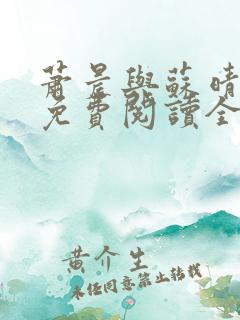 蕭晨與蘇晴
免費閱讀全
黃介生
未经同意禁止转载